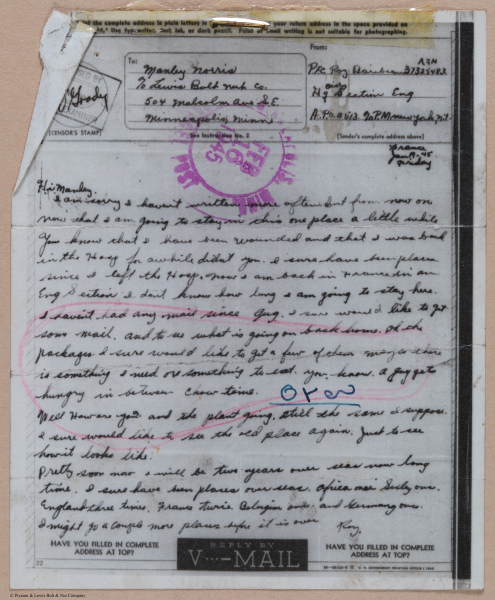 Print the complete address in plain letters in
your return address in the space provided on
Use typewriter, dark ink, or dark pencil. Faint or small writing is not suitable for photographing.
To:
From:
Manley Norris
℅ Lewis Bolt Nut Co.
504 Malcolm Ave S.E.
Minneapolis Minn
Pfc Roy
Hq Section Eng
A.P.O. 513 ℅ P.M. New York N.Y.
(CENSOR'S STAMP)
See Instruction No. 2
(Sender's complete address above)
MINN.
FEB
10
1945
POST
France
Jan 19-45
Friday
Hi Manley.
I am sorry I haven't written more often but from now on
now that I am going to stay in this one place a little while
You know that I have been wounded and that I was back
in the Hosp for awhile didn't you. I sure have been places
since I left the Hosp. now I am back in France in an
Eng Section I don't know how long I am going to stay here.
I haven't had any mail since Aug. I sure would like to get
som mail. and to us what is going on back home. Oh oh
packages I sure would like to get a few of them maybe there
is somthing I need or something to eat. you know. a guy gets
hungry in between chow time.
Over
Well How are you and the plant going. still the same I suppose.
I sure would like to see the old place again. Just to see
how it looks like.
Pretty soon now I will be two years over seas now long
time. I sure have been places over seas. Africa once Sicily once.
England three time. France twice Belgium once and Germany once.
I might go a couple more places before it is over
Roy.
HAVE YOU FILLED IN COMPLETE
ADDRESS AT TOP?
REPLY BY
V···-MAIL
HAVE YOU FILLED IN COMPLETE
ADDRESS AT TOP?
U. S. GOVERNMENT PRINTING OFFICE
© Pioneer & Lewis Bolt & Nut Company